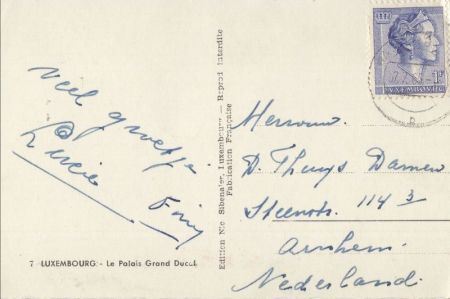 veel groetjes
Lucie
7 LUXEMBOURG - Le Palais Grand Ducal
Edition Nic. Sibenaler, Luxembourg — Reprod interdite
Fabrication Française
1F
LUXEMBOURG
Mevrouw
D. Thuys Damen
Steenstr. 114 3
Arnhem.
Nederland.